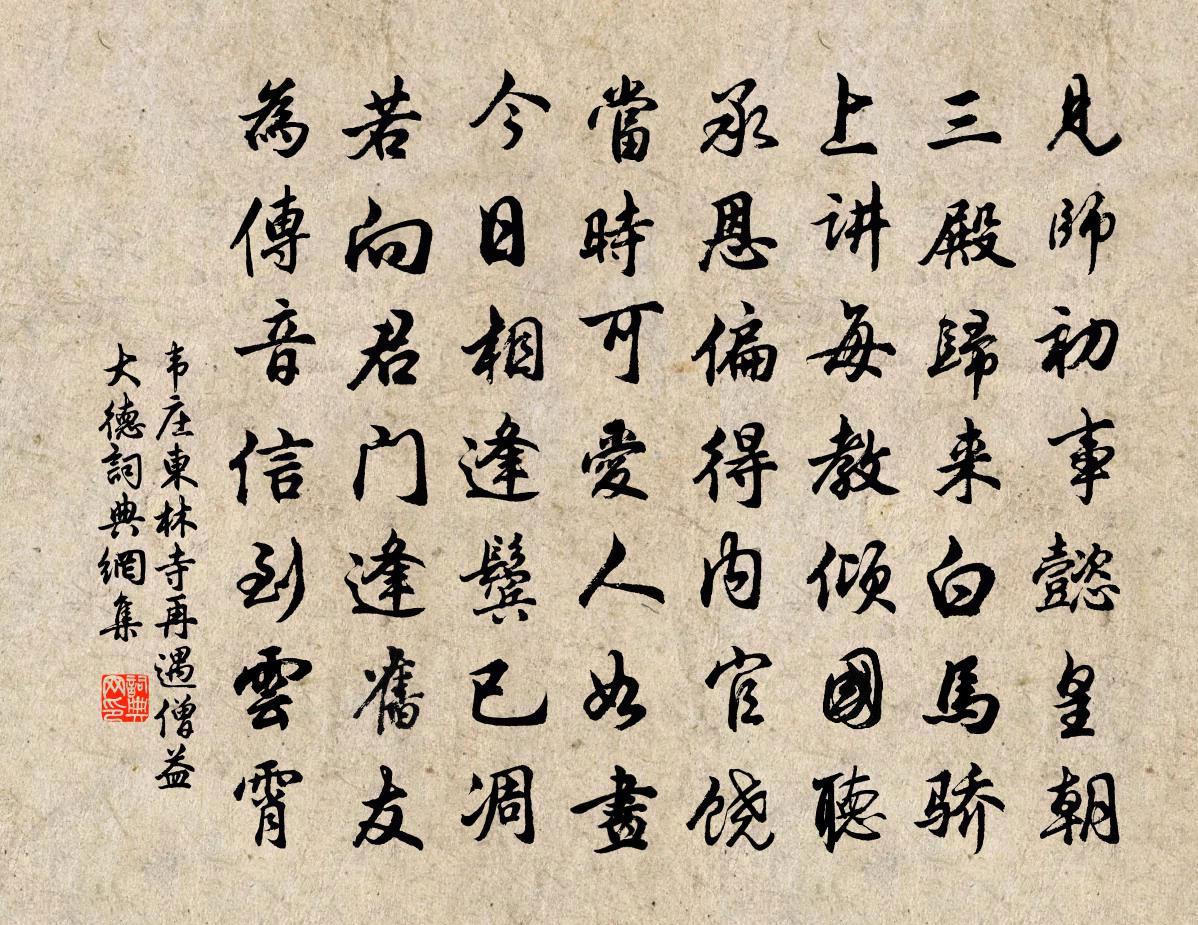 見師初事懿皇朝
三殿歸来白馬骄
上讲每教倾國聽
承恩偏得内官饶
當時可愛人如畫
今日相逢鬓已凋
若向君门逢舊友
為傳音信到雲霄
韦庄東林寺再遇僧益
大德詞典網集
詞典网印